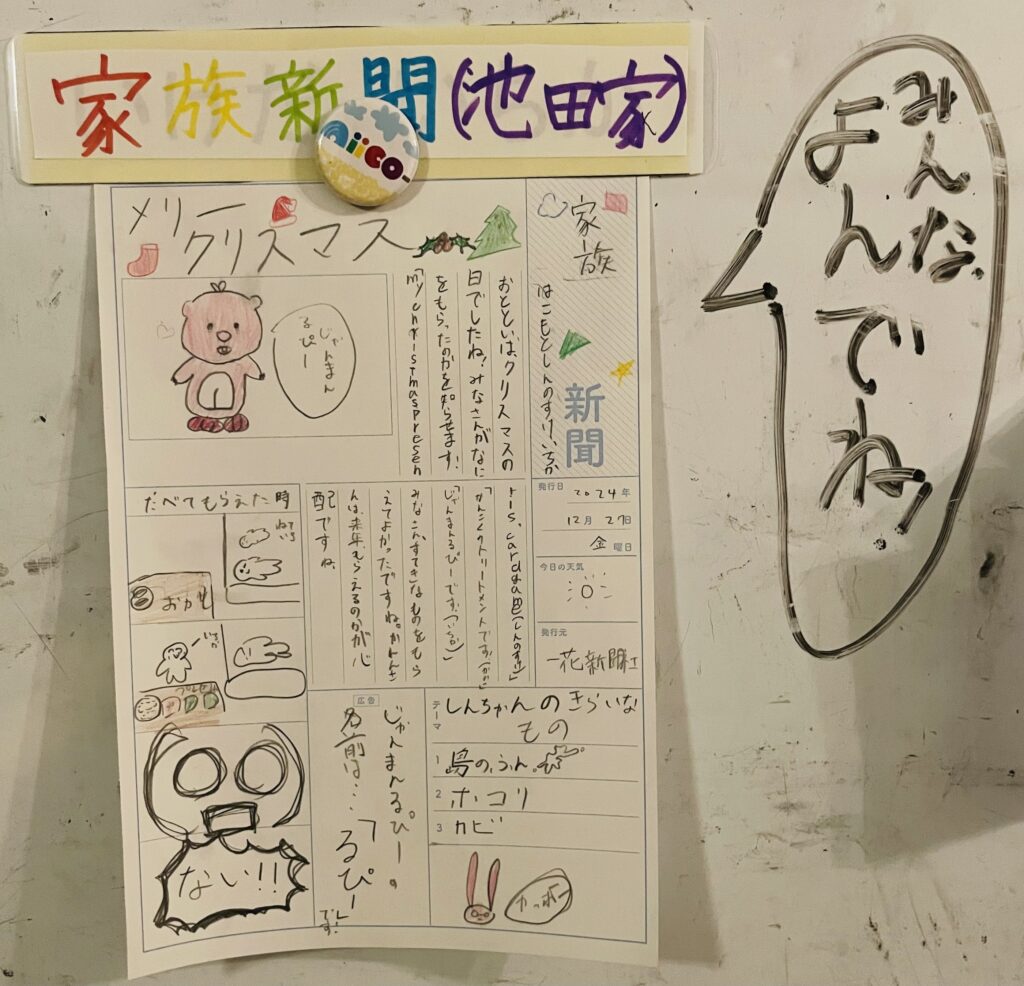 家族新聞(池田家)
aiico
みんな、
よんでね!
メリー
クリスマス
家族
新聞
じゃんまん
るぴー
おとといはクリスマスの
日でしたね!みなさんがなに
をもらったのかを知らせます!
発行日 2024年
12月 27日
金曜日
今日の天気
発行元
一花新聞社
「かんこくのトリートメントです(かか)」
「じゃんまんるぴーです(いちか)」
みなさんすてきなものをもら
えてよかったですね。
んは、来年もらえるのかが心
配ですね。
たべてもらえた時
ねている
おかし
いちか
ない!!
広告
じゃんまんるぴーの
名前は…
「るぴー」
です!
テーマ しんちゃんのきらいな
もの
1 鳥の、ふん。
2 ホコリ
3 カビ